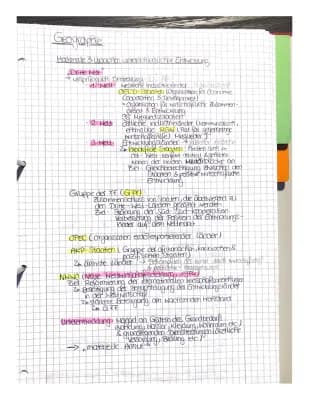 Geographie
Merkmale & Ursachen unterschiedlicher Entwicklung
"Dritte Welt"
→ ursprünglich Einteilung
1. Welt: westliche Industrieländer
OECD-Staaten (Organisation for Economic
Cooperation & Development)
→ Organisation für wirtschaftliche Zusammen-
arbeit & Entwicklung
2. Welt: östliche Industrieländer (kommunist.,
ehemalige RGW (Rat für gegenseitige
Wirtschaftshilfe) Mitglieder)
3. Welt: Entwicklungsländer
→ Blockfreie Staaten
Ost-West
keinem der beiden Militärblöcke an
Ziel: Gleichberechtigung zwischen den
Staaten & positive wirtschaftliche
Entwicklung
Gruppe der 77 (G77)
Zusammenschluss von Staaten, die überwiegend zu
den Dritte-Welt-Ländern gezählt werden
Ziel: Förderung der Süd-Süd-Kooperation
Verbesserung der Position der Entwicklungs-
länder auf dem Weltmarkt
OPEC (Organisation erdölexportierender Länder)
AKP-Staaten (Gruppe der afrikanischen, karibischen &
pazifischen Staaten)
NWWO (Neue Weltwirtschaftsordnung)
Ziel: Reformierung der internationalen Wirtschaftsbeziehungen
→ Beseitigung der Benachteiligung der Entwicklungsländer
in der Weltwirtschaft
→ stärkere Beteiligung am wachsenden Wohlstand
→ G77
Unterentwicklung: Mangel an Gütern des Grundbedarfs
(Nahrung, Wasser, Kleidung, Wohnraum, etc.)
& grundlegenden Dienstleistungen (ärztliche
Versorgung, Bildung, etc.)
→ "materielle Armut"